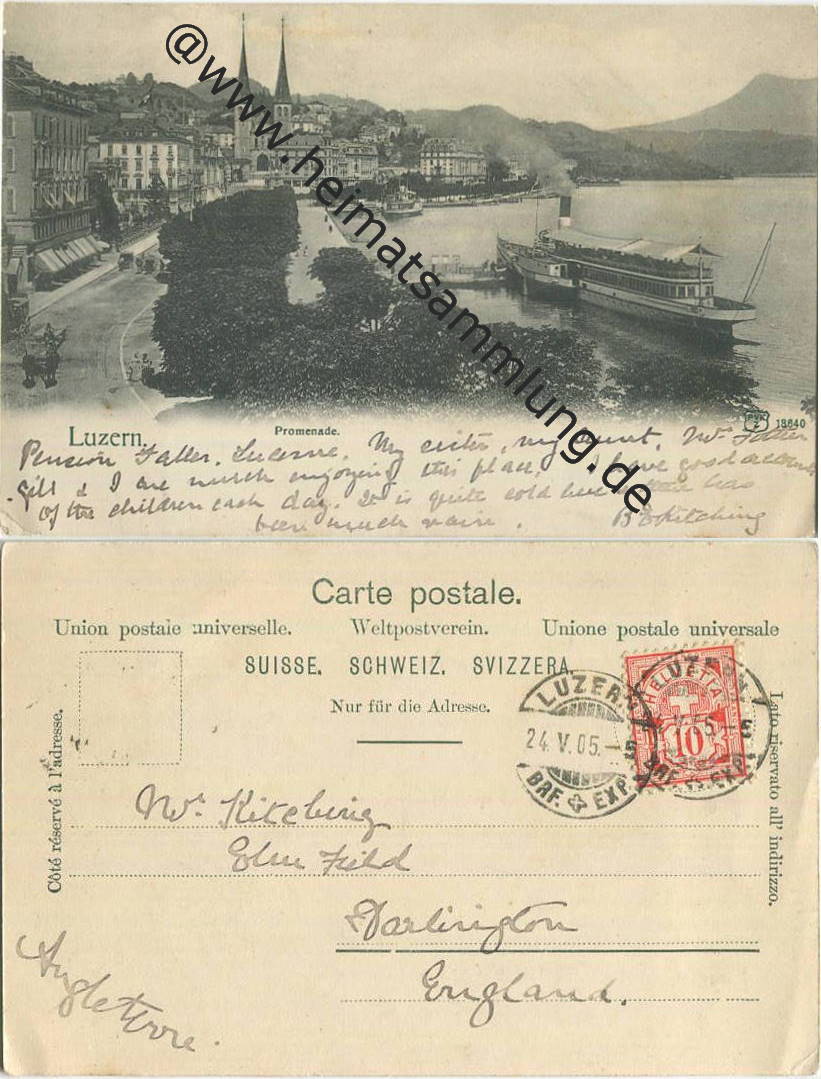 @www.heimatsammlung.de
PVK
Z
18640
Luzern.
Promenade.
Pension Faller. Lucerne. My sister, my aunt, Mr Faller
Gill & I are much enjoying this place, I have good accounts
of the children each day. It is quite cold here & has
been much rain. B E Kitching
Carte postale.
Union postale universelle. Weltpostverein. Unione postale universale
SUISSE. SCHWEIZ. SVIZZERA.
Nur für die Adresse.
Côté réservé à l'adresse.
Lato riservato all' indirizzo.
LUZERN
24.V.05.-
BRF. EXP.
LUZERN
BRF. EXP.
HELVETIA
10
Mr Kitching
Elm Field
Darlington
England.
Angleterre.